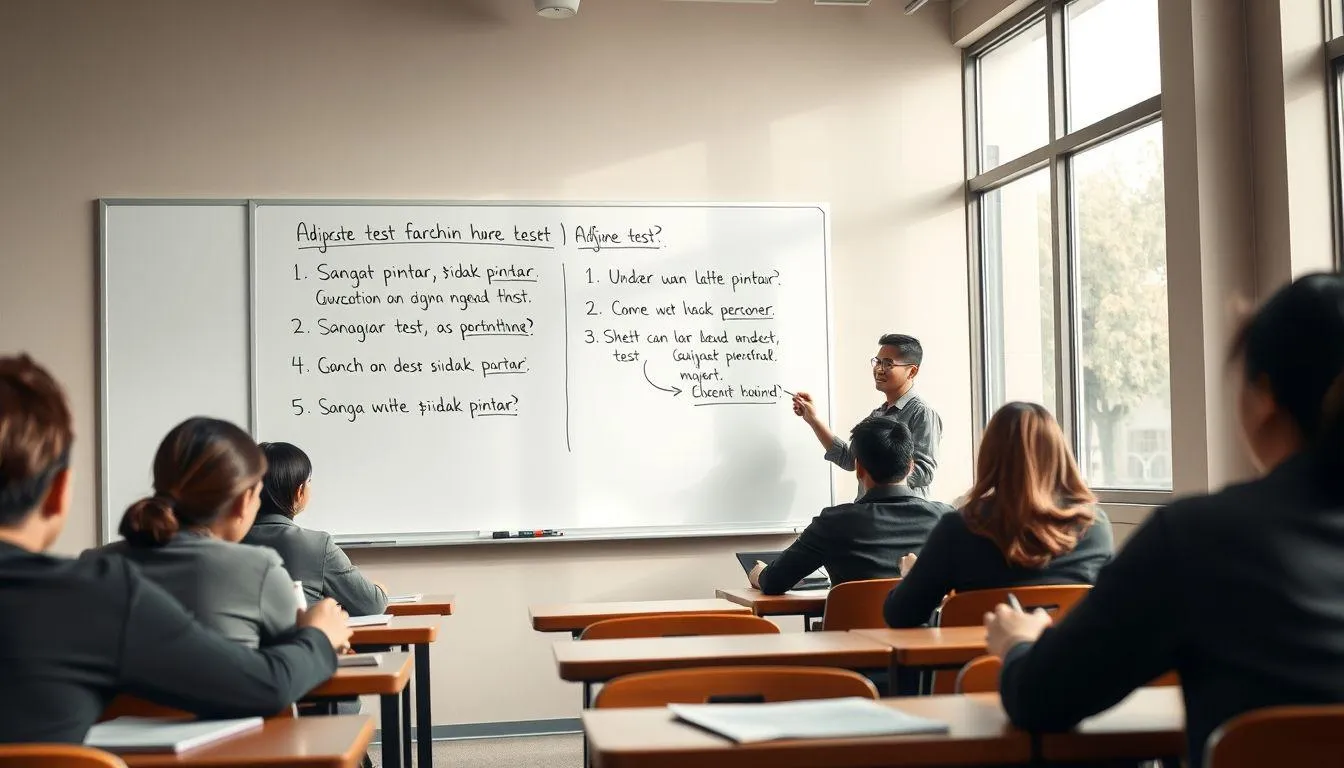 Adijpcste test farchin hure tesst
1. Sangat pintar, sidak pintar.
Gwcotion an digna ngead thst.
2. Sanagiar test, as portnthine?
4. Ganch on dest siidak partar.
5. Sanga witte siidak pintar?
Adijune test?
1. Under wan latte pintar?
2. Come wet hack perconer.
3. Shett can lar baud andect,
test Cauijast presfral.
majert.
Cbscent hoinind?